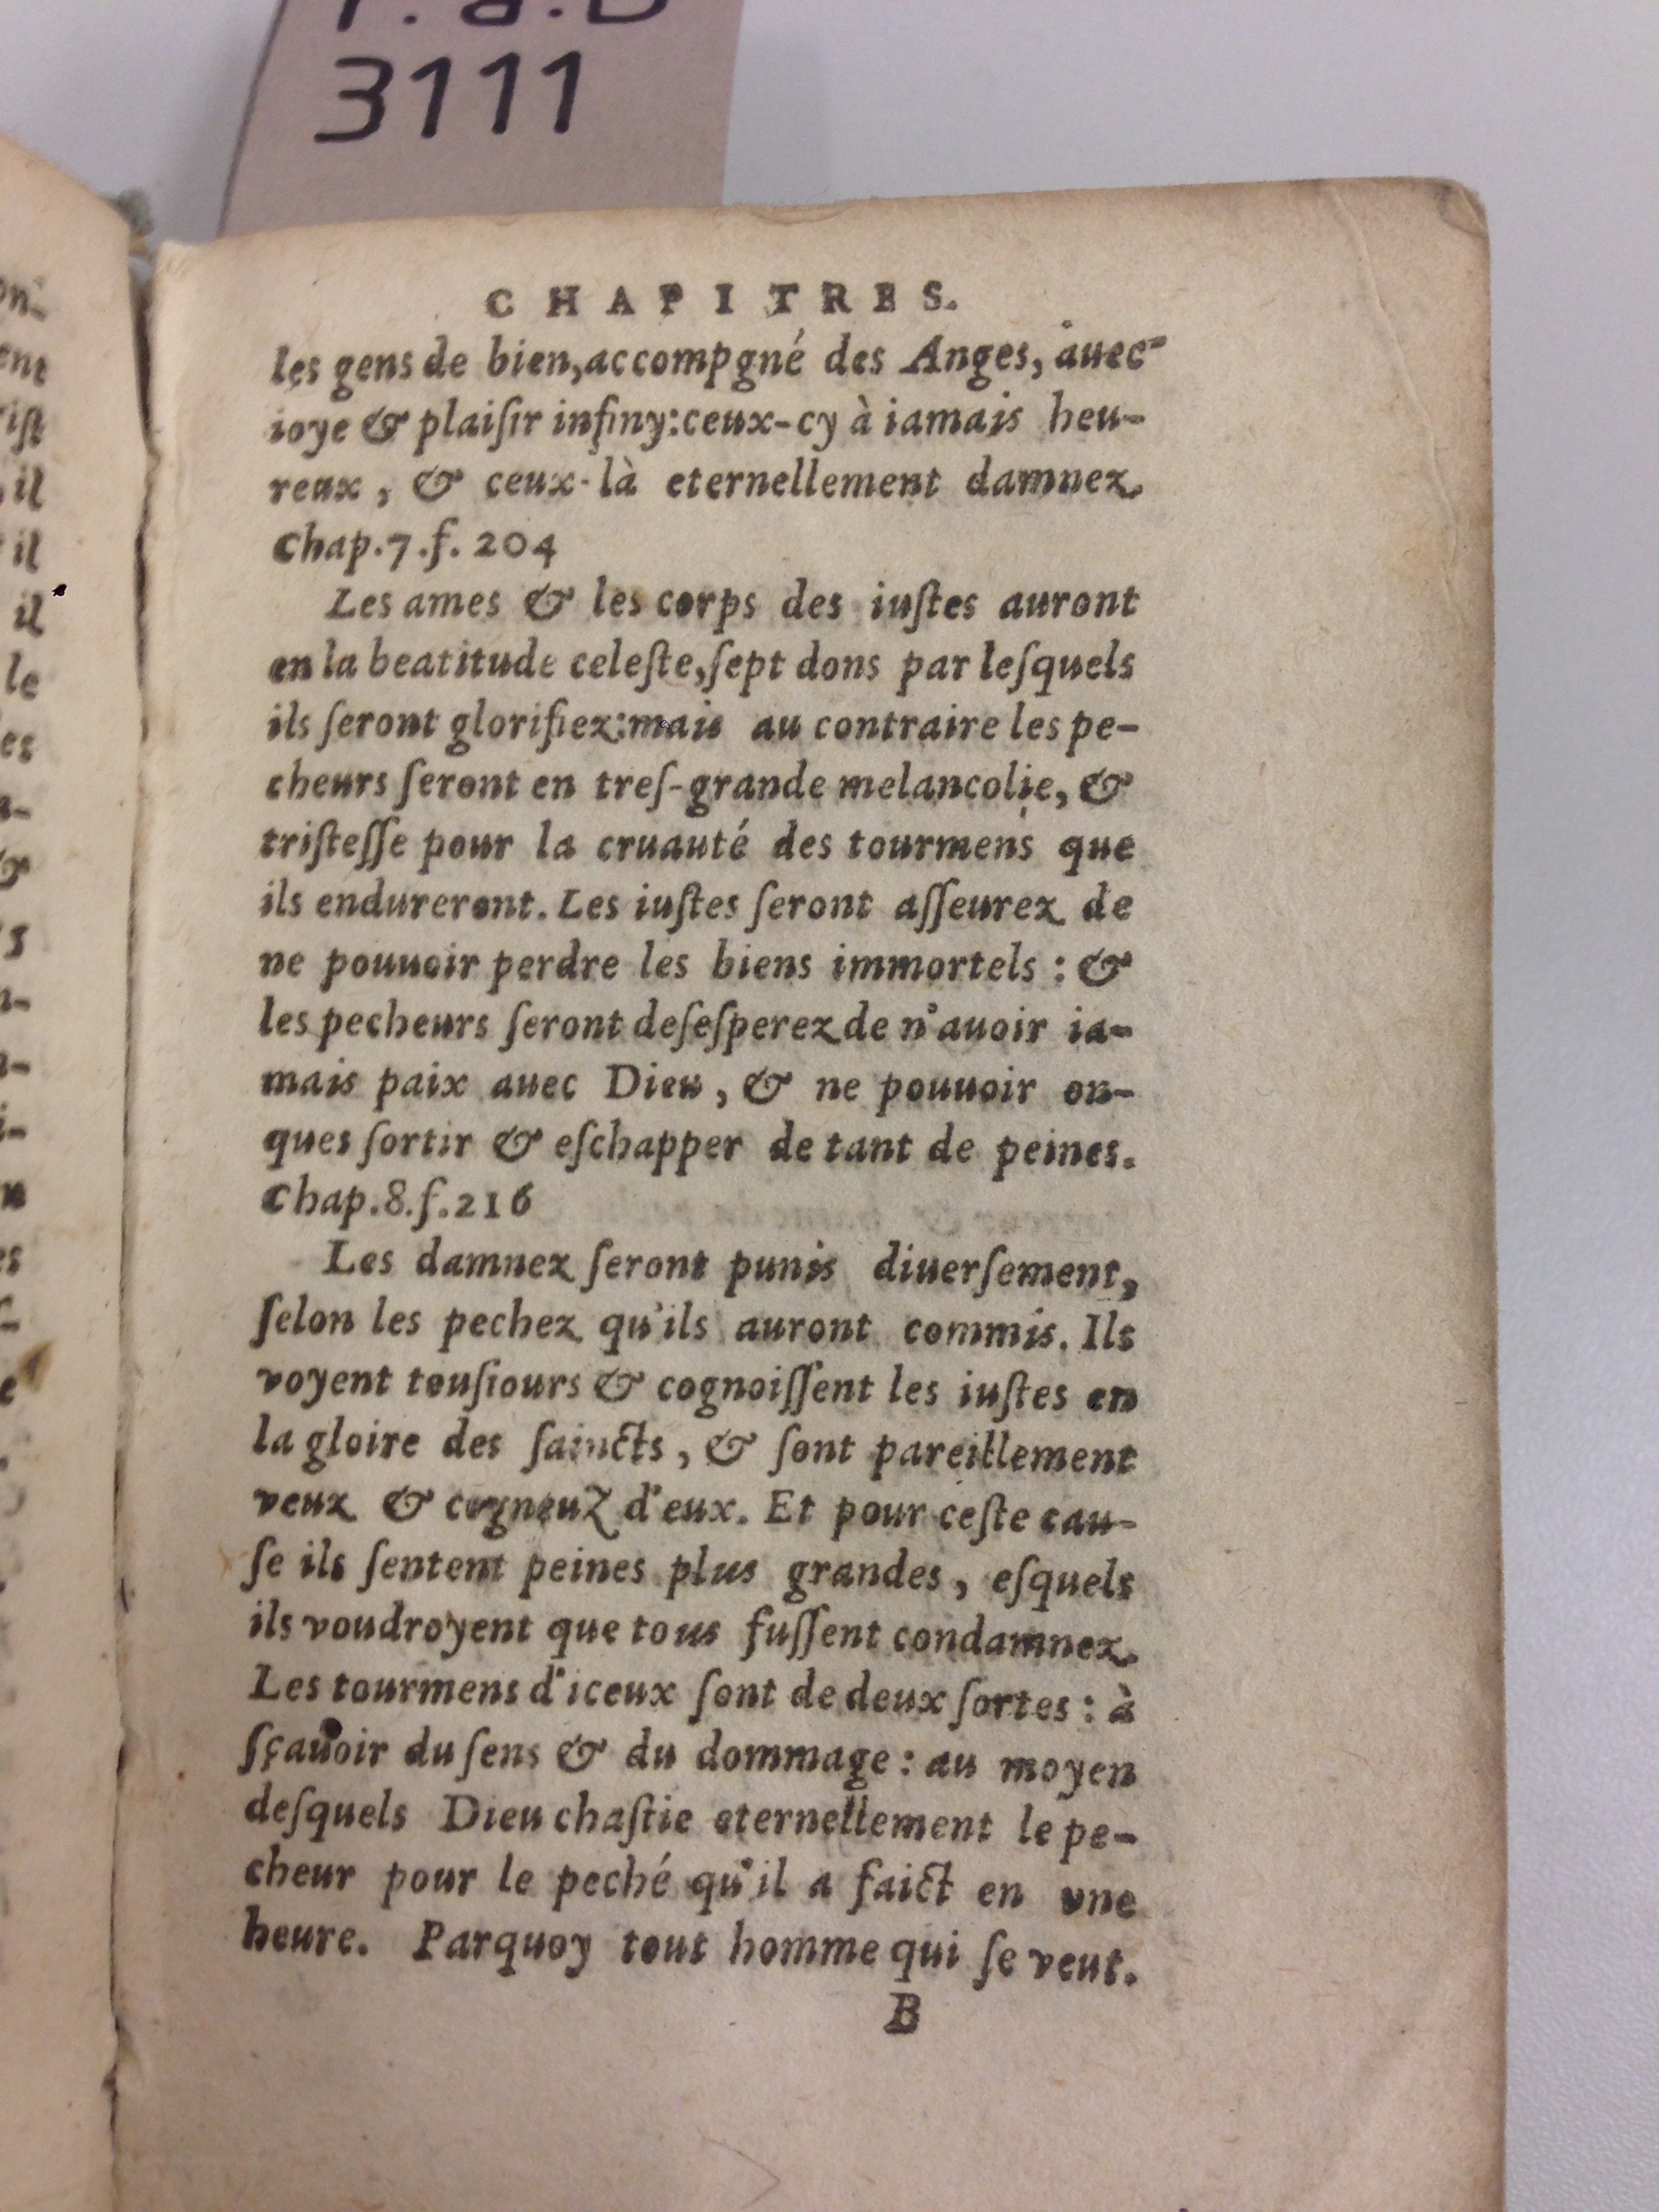 3111
CHAPITRES.
les gens de bien,accompgné des Anges, auec
ioye & plaiſir infiny:ceux-cy à iamais heu-
reux, & ceux-là eternellement damnez.
Chap.7.f. 204
Les ames & les corps des iuſtes auront
en la beatitude celeſte,ſept dons par leſquels
ils ſeront glorifiez:mais au contraire les pe-
cheurs ſeront en treſ-grande melancolie, &
triſteſſe pour la cruauté des tourmens que
ils endureront. Les iuſtes ſeront aſſeurez de
ne pouuoir perdre les biens immortels : &
les pecheurs ſeront deſeſperez de n'auoir ia-
mais paix auec Dieu, & ne pouuoir on-
ques ſortir & eſchapper de tant de peines.
Chap.8.f.216
Les damnez ſeront punis diuerſement,
ſelon les pechez qu'ils auront commis. Ils
voyent touſiours & cognoiſſent les iuſtes en
la gloire des ſaincts, & ſont pareillement
veuz & cogneuz d'eux. Et pour ceſte cau-
ſe ils ſentent peines plus grandes, eſquels
ils voudroyent que tous fuſſent condamnez.
Les tourmens d'iceux ſont de deux ſortes : à
ſçauoir du ſens & du dommage : au moyen
deſquels Dieu chaſtie eternellement le pe-
cheur pour le peché qu'il a faict en vne
heure. Parquoy tout homme qui ſe veut.
B